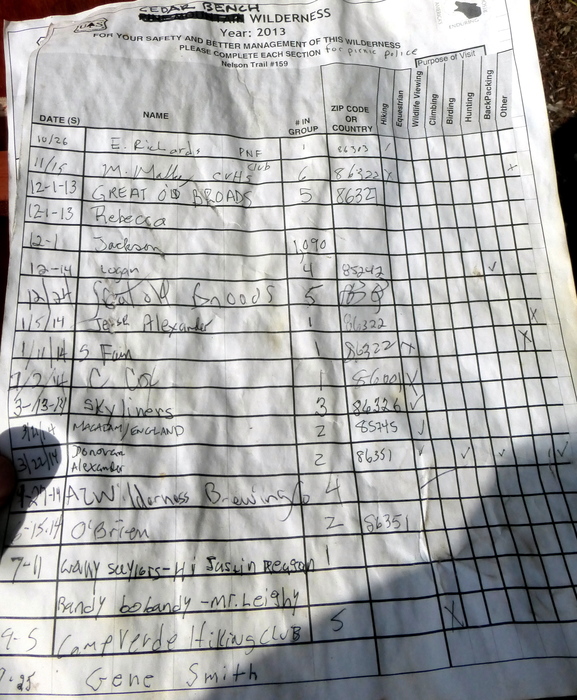 CEDAR BENCH
WILDERNESS
Year: 2013
FOR YOUR SAFETY AND BETTER MANAGEMENT OF THIS WILDERNESS
PLEASE COMPLETE EACH SECTION for picnic police
Nelson Trail #159
Purpose of Visit
DATE (S) NAME # IN GROUP ZIP CODE OR COUNTRY Hiking Equestrian Wildlife Viewing Climbing Birding Hunting BackPacking Other
10/26 E. Richards PNF 1 86303
11/15 M. CVHS Club 6 86322
12-1-13 GREAT OLD BROADS 5 8632
12-1-13 Rebecca
12-1 Jackson 1,090
12-14 Logan 4 85242
12/24 Broods 5
1/5/14 Alexander 1 86322
1/11/14 S 1 86322
C 1 86001
Skyliners 3 86326
MACADAM/ENGLAND 2 85745
3/22/14 Donovan Alexander 2 86351
AZ Wilderness Brewing Co 4
15.14 O'Brien 2 86351
7-11 Wally saylors-Hi Justin Reagan 1
Randy bobandy -Mr. Leighy
9-5 Camp Verde Hiking Club 5
Gene Smith